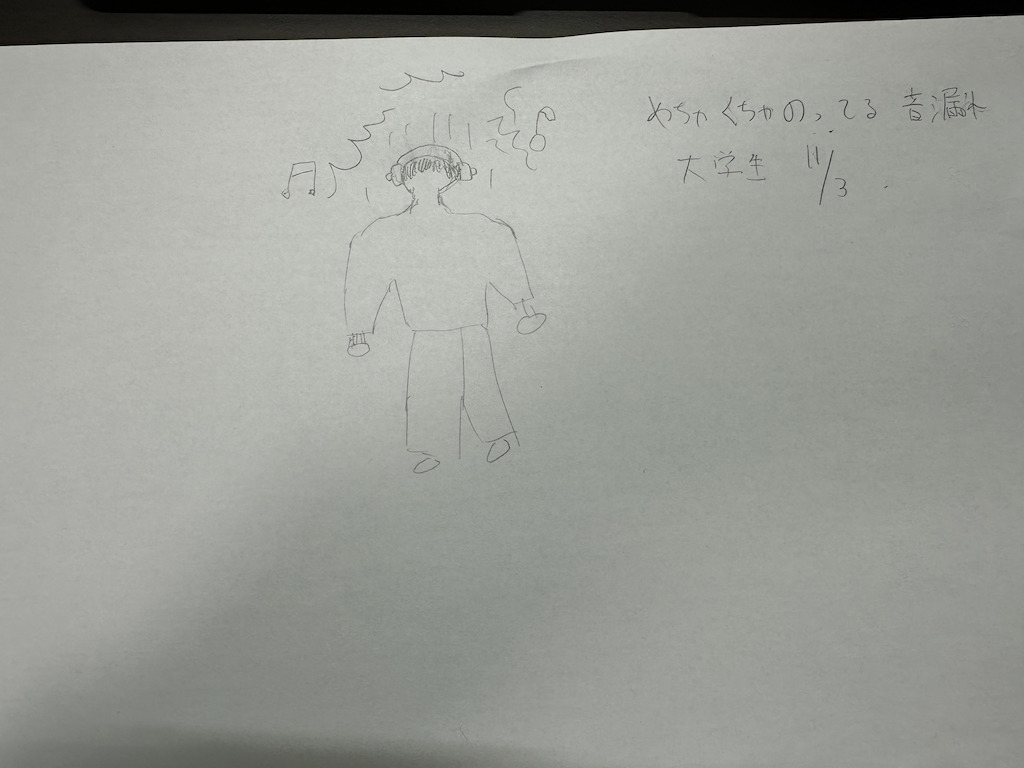 めちゃくちゃのってる 音漏れ
大学生 11/3